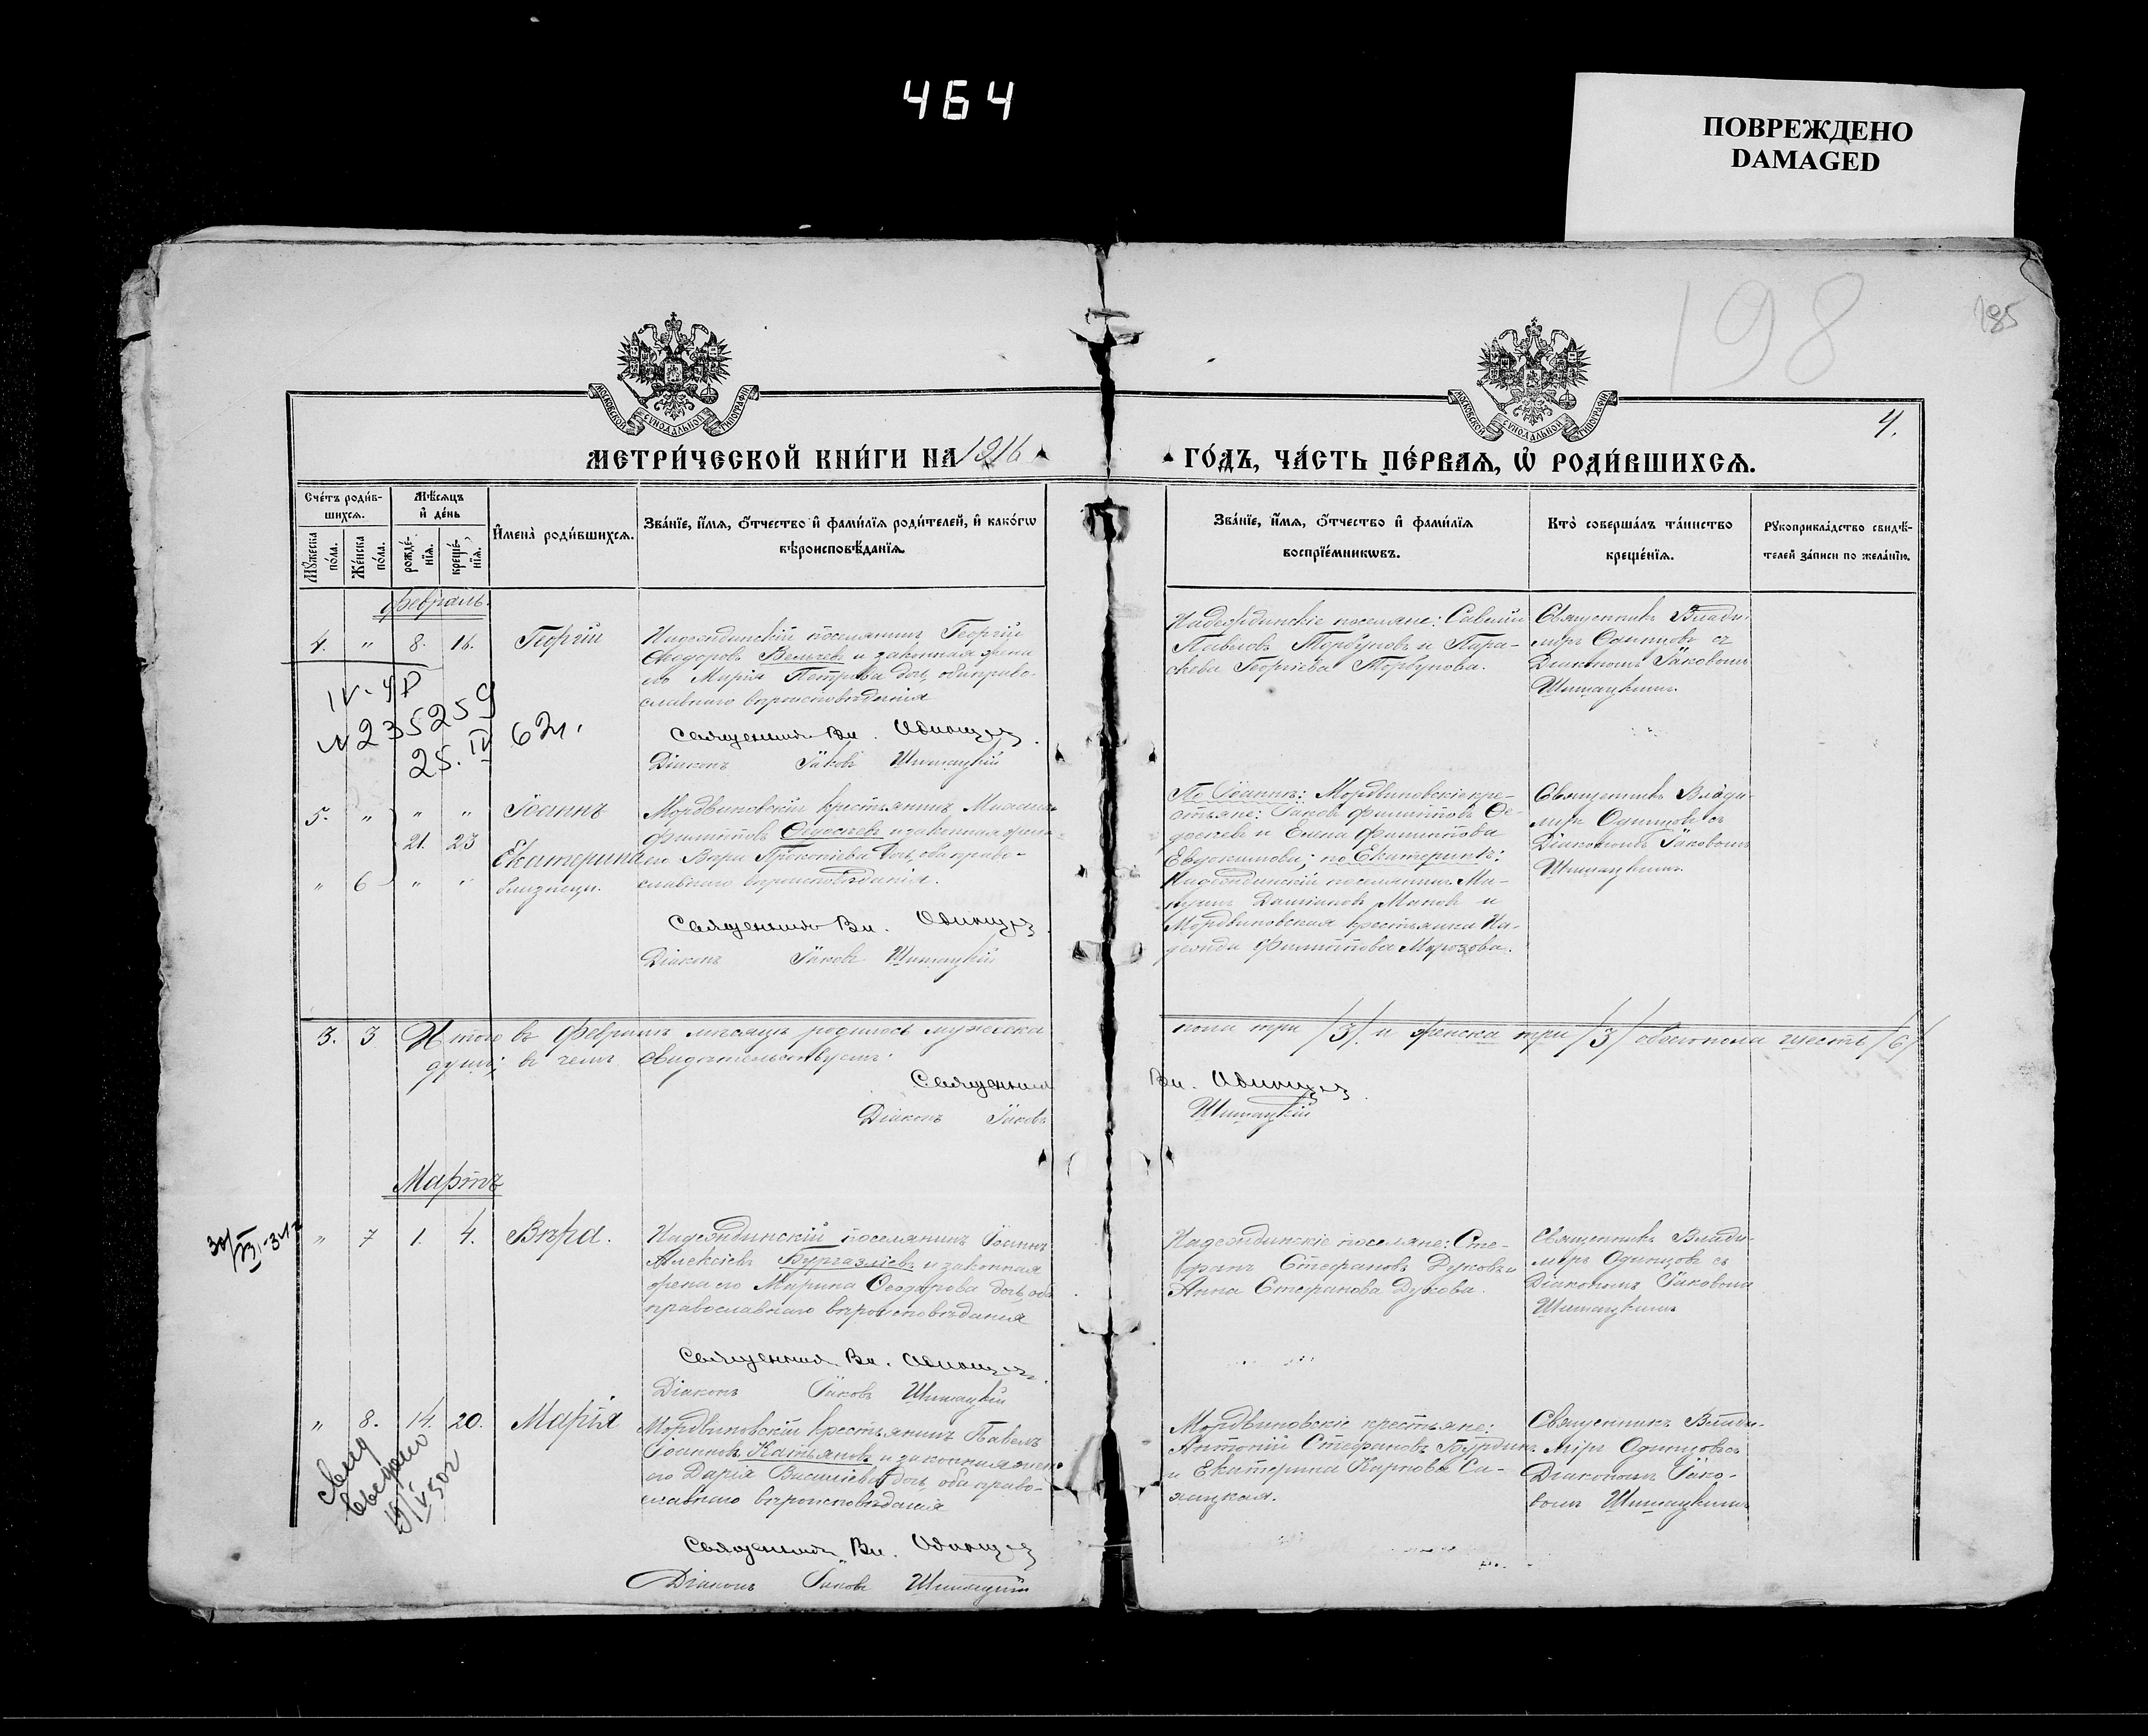 464
ПОВРЕЖДЕНО
DAMAGED
198
185
4.
МОСКОВСКОЙ СѴНОДАЛЬНОЙ ТИПОГРАФІИ
МОСКОВСКОЙ СѴНОДАЛЬНОЙ ТИПОГРАФІИ
МЕТРИ́ЧЕСКОЙ КНИ́ГИ НА 1916
ГО́ДЪ, ЧА́СТЬ ПЕ́РВАѦ, Ѡ҆ РОДИ́ВШИХСѦ.
Сче́тъ роди́в-
шихсѧ.
Мѣ́сѧцъ
и҆ де́нь
Мꙋ́жеска
по́ла.
Же́нска
по́ла.
рожде́-
нїѧ.
креще́-
нїѧ.
И҆мена̀ роди́вшихсѧ.
Зва́нїе, и҆́мѧ, ѻ҆́тчество и҆ фами́лїѧ роди́телей, и҆ како́гѡ
вѣроисповѣ́данїѧ.
Зва́нїе, и҆́мѧ, ѻ҆́тчество и҆ фами́лїѧ
воспрїе́мникѡвъ.
Кто̀ соверша́лъ та́инство
креще́нїѧ.
Рꙋкоприкла́дство свидѣ́-
телей за́писи по жела́нїю.
Февраль.
4. " 8. 16. Георгій
Надеждинскій поселянинъ Георгій
Ѳеодоровъ Вельчевъ и законная жена
его Марія Петрова доч, оба право-
славнаго вѣроисповѣданія
Священникъ Вл. Одинцовъ.
Діаконъ Іаковъ Шишацкій
Надеждинскіе поселяне: Савелій
Павловъ Торбуновъ и Пара-
скева Георгіева Торбунова.
Священникъ Влади-
міръ Одинцовъ съ
Діакономъ Іаковомъ
Шишацкимъ.
IV-ЯР
N 235259
25.IV 62г.
5. " " " Іоаннъ
21. 23
" 6 " " Екатерина
близнецы.
Мордвиновскій крестьянинъ
Филипповъ Ѳедосѣевъ и законная жена
его Вѣра Прокопіева доч, оба право-
славнаго вѣроисповѣданія.
Священникъ Вл. Одинцовъ.
Діаконъ Іаковъ Шишацкій
По Іоаннѣ: Мордвиновскіе кре-
стьяне: Іаковъ Филипповъ Ѳе-
досѣевъ и Елена Филиппова
Евдокимова; по Екатеринѣ:
Надеждинскій поселянинъ
и
Мордвиновская крестьянка На-
дежда Филиппова Морозова.
Священникъ Влади-
міръ Одинцовъ съ
Діакономъ Іаковомъ
Шишацкимъ.
3. 3 Итого въ Февралѣ мѣсяцѣ родилось мужеска
пола три /3/ и женска три /3/ обоего пола шесть /6/
душъ; въ чемъ свидѣтельствуемъ:
Священникъ Вл. Одинцовъ.
Діаконъ Іаковъ Шишацкій
Мартъ
" 7 1. 4. Вѣра.
Надеждинскій поселянинъ Іоаннъ
Алексіевъ Бургазліевъ и законная
жена его Марина Ѳеодорова доч, оба
православнаго вѣроисповѣданія
Священникъ Вл. Одинцовъ.
Діаконъ Іаковъ Шишацкій
Надеждинскіе поселяне: Сте-
фанъ Стефановъ Дуковъ и
Анна Стефанова Дукова.
Священникъ Влади-
міръ Одинцовъ съ
Діакономъ Іаковомъ
Шишацкимъ
" 8. 14. 20. Марія
Мордвиновскій крестьянинъ Павелъ
Іоанновъ Катьяновъ и законная жена
его Дарія Василіева доч, оба право-
славнаго вѣроисповѣданія
Священникъ Вл. Одинцовъ
Діаконъ Іаковъ Шишацкій
Мордвиновскіе крестьяне:
Антоній Стефановъ Бурдинъ
и Екатерина Карпова Са-
жицкая.
Священникъ Влади-
міръ Одинцовъ съ
Діакономъ Іако-
вомъ Шишацкимъ